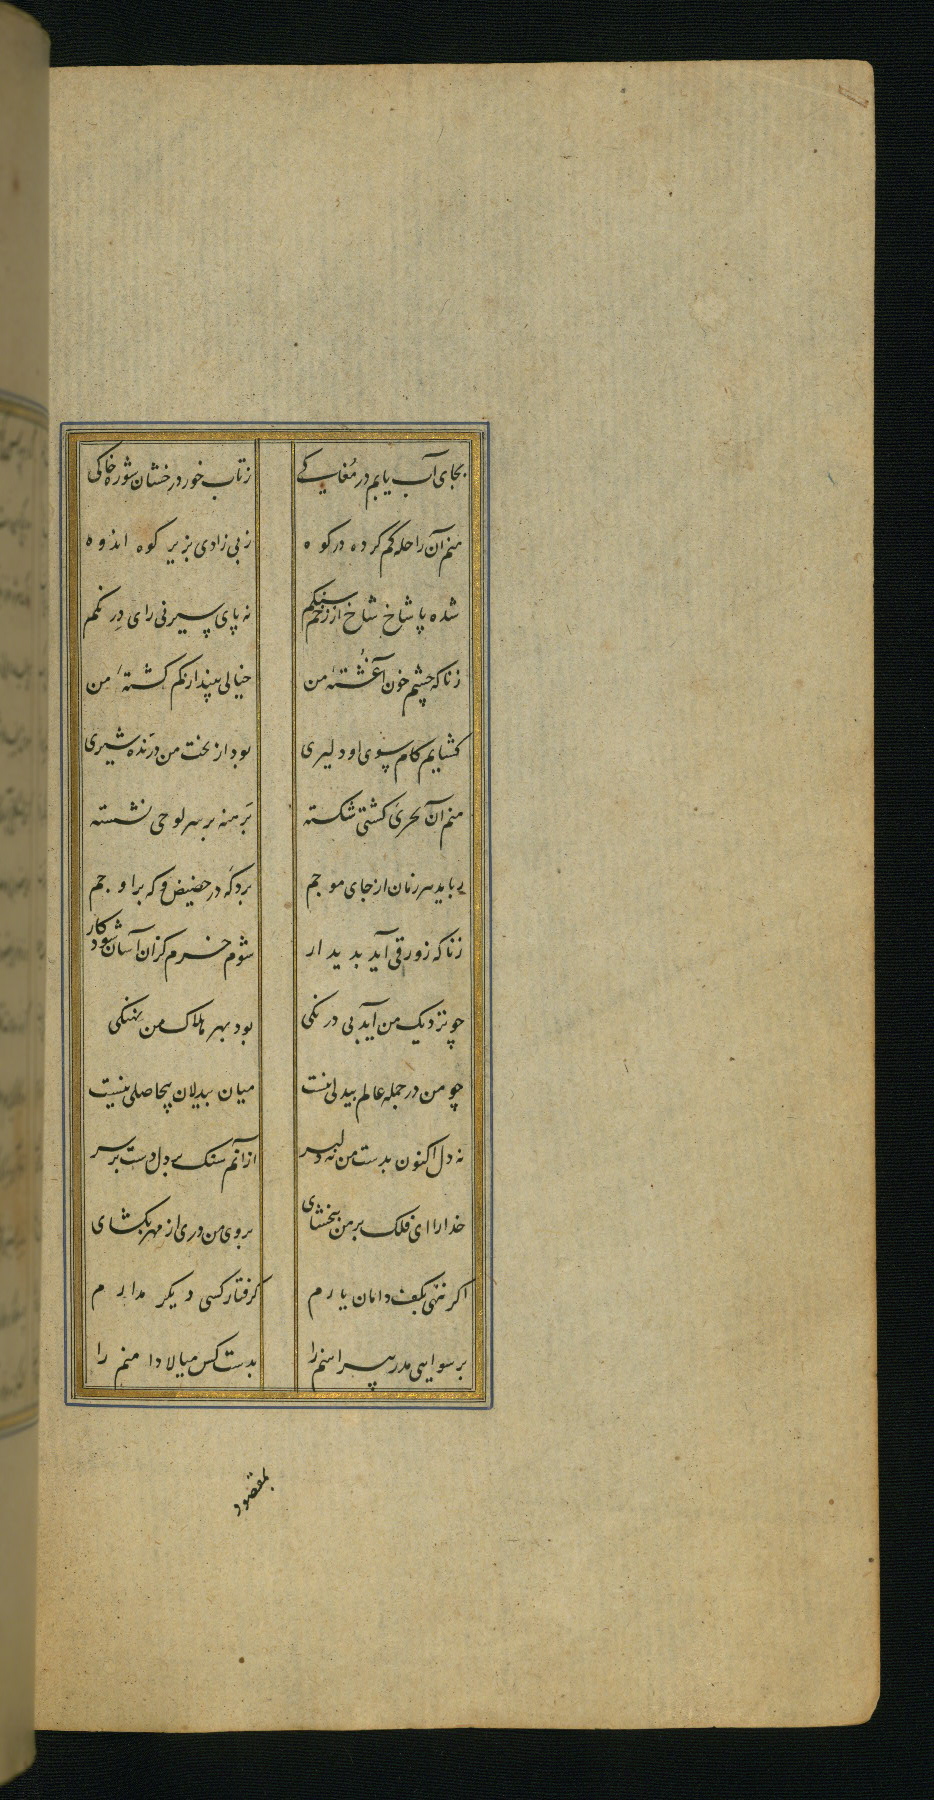 بجای آب یابم در مغاکی زتاب خور درخشان شوره خاکی
منم آن راحله کم کرده در کوه زبی زادی بزیر کوه اندوه
شده پا شاخ شاخ از زخم سنکم نه پای سیر نی رای درنکم
زناکه چشم خون آغشتهٔ من خیالی بیند ار نکم کشتهٔ من
کشایم کام سوی او دلیری بود از بخت من درنده شیری
منم آن بحری کشتی شکسته برهنه بر سر لوحی نشسته
رباید هر زمان از جای موجم برد که در حضیض و که بر اوجم
زناکه زورقی آید بدیدار شوم خرم کزان آسان شود کار
چو نزدیک من آید بی درنکی بود بهر هلاک من نهنکی
چو من در جمله عالم بیدلی نیست میان بیدلان بیحاصلی نیست
نه دل اکنون بدست من نه دلبر از آنم سنک بر دل دست بر سر
خدارا ای فلک بر من ببخشای بروی من دری از مهر بکشای
اکر ننهی بکف دامان یارم کرفتار کسی دیکر مدارم
برسوایی مدر پیراهنم را بدست کس میالا دامنم را
بمقصود